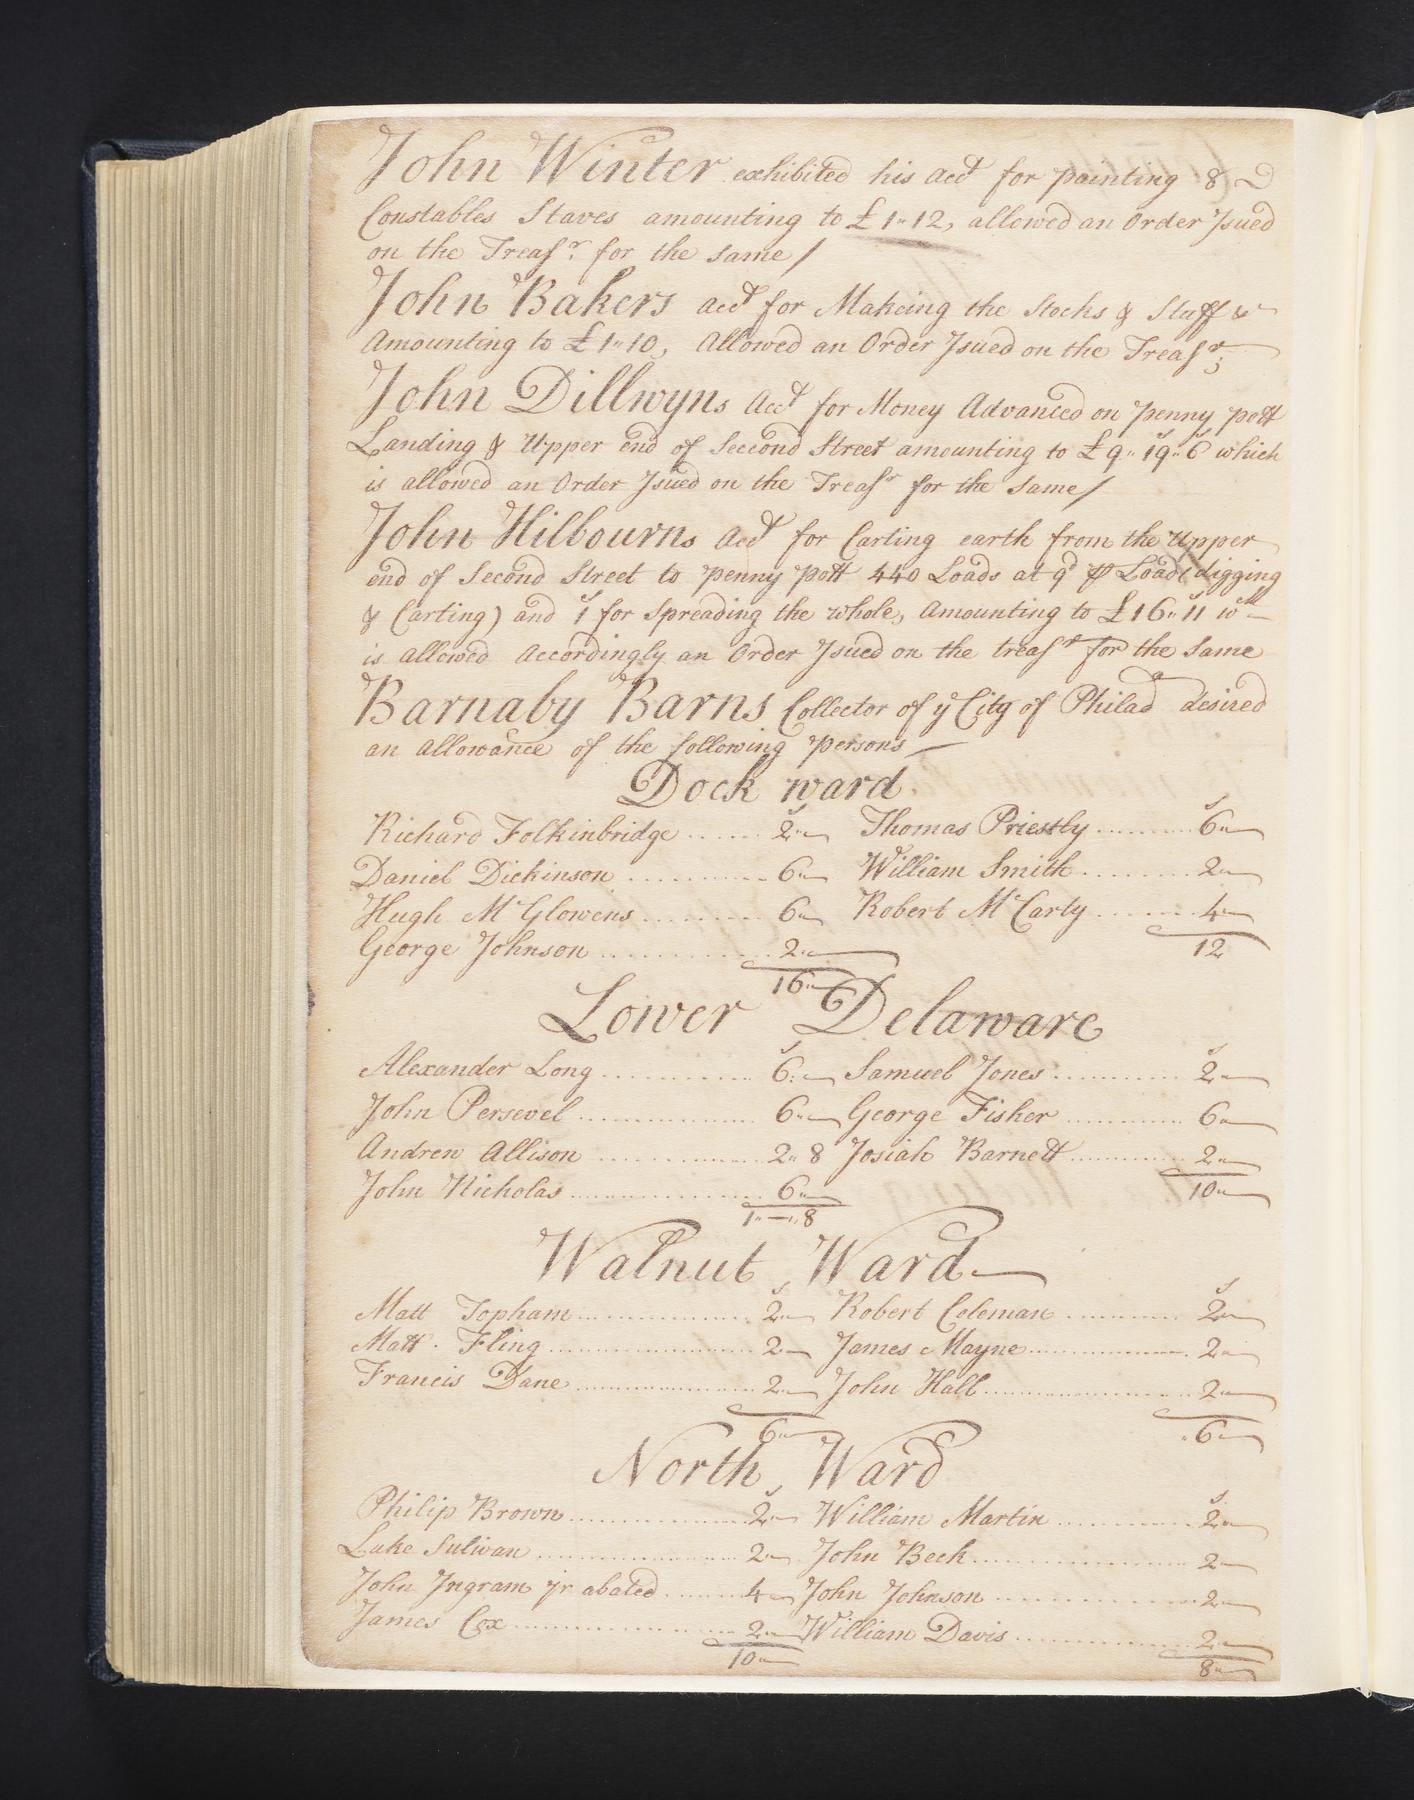 John Winter exhibited his acct for painting 8
Constables Staves amounting to £1"12, allowed an Order Isued
on the Treasr: for the same/
John Bakers acct for Makeing the Stocks & Staff &c
Amounting to £1"10, Allowed an Order Isued on the Treasr;
John Dillwyns Acct for Money Advanced on Penny Pott
Landing & Upper end of Second Street amounting to £9"19s"6 which
is allowed an Order Isued on the Treasr for the same/
John Hilbourns Acct for Carting earth from the Upper
end of Second Street to Penny Pott 440 Loads at 9d ⅌ Load (digging
& Carting) and 1s for Spreading the whole, Amounting to £16"11s wch
is Allowed Accordingly an Order Isued on the treasr for the Same
Barnaby Barns Collector of ye City of Philada desired
an Allowance of the following Persons
Dock ward.
Richard Folkinbridge ...... 2s" Thomas Priestly ......... 6s"
Daniel Dickinson ............ 6" William Smith ......... 2"
Hugh McGlowens ......... 6" Robert McCarty ....... 4"
George Johnson ............ 2" 12
16"
Lower Delaware
Alexander Long ............ 6s" Samuel Jones ............ 2s"
John Persevel ............... 6" George Fisher ............ 6"
Andrew Allison ............ 2"8 Josiah Barnett ............ 2"
John Nicholas ............... 6" 10"
1"—"8
Walnut Ward
Matt Topham ............... 2s" Robert Coleman ......... 2s"
Matt. Fling .................. 2" James Mayne ............ 2"
Francis Dane ............... 2" John Hall .................. 2"
6" 6"
North Ward
Philip Brown ............... 2s" William Martin ......... 2s"
Luke Sulivan ............... 2" John Beek .................. 2"
John Ingram jr abated ...... 4" John Johnson ............ 2"
James Cox .................. 2" William Davis ............ 2"
10" 8"